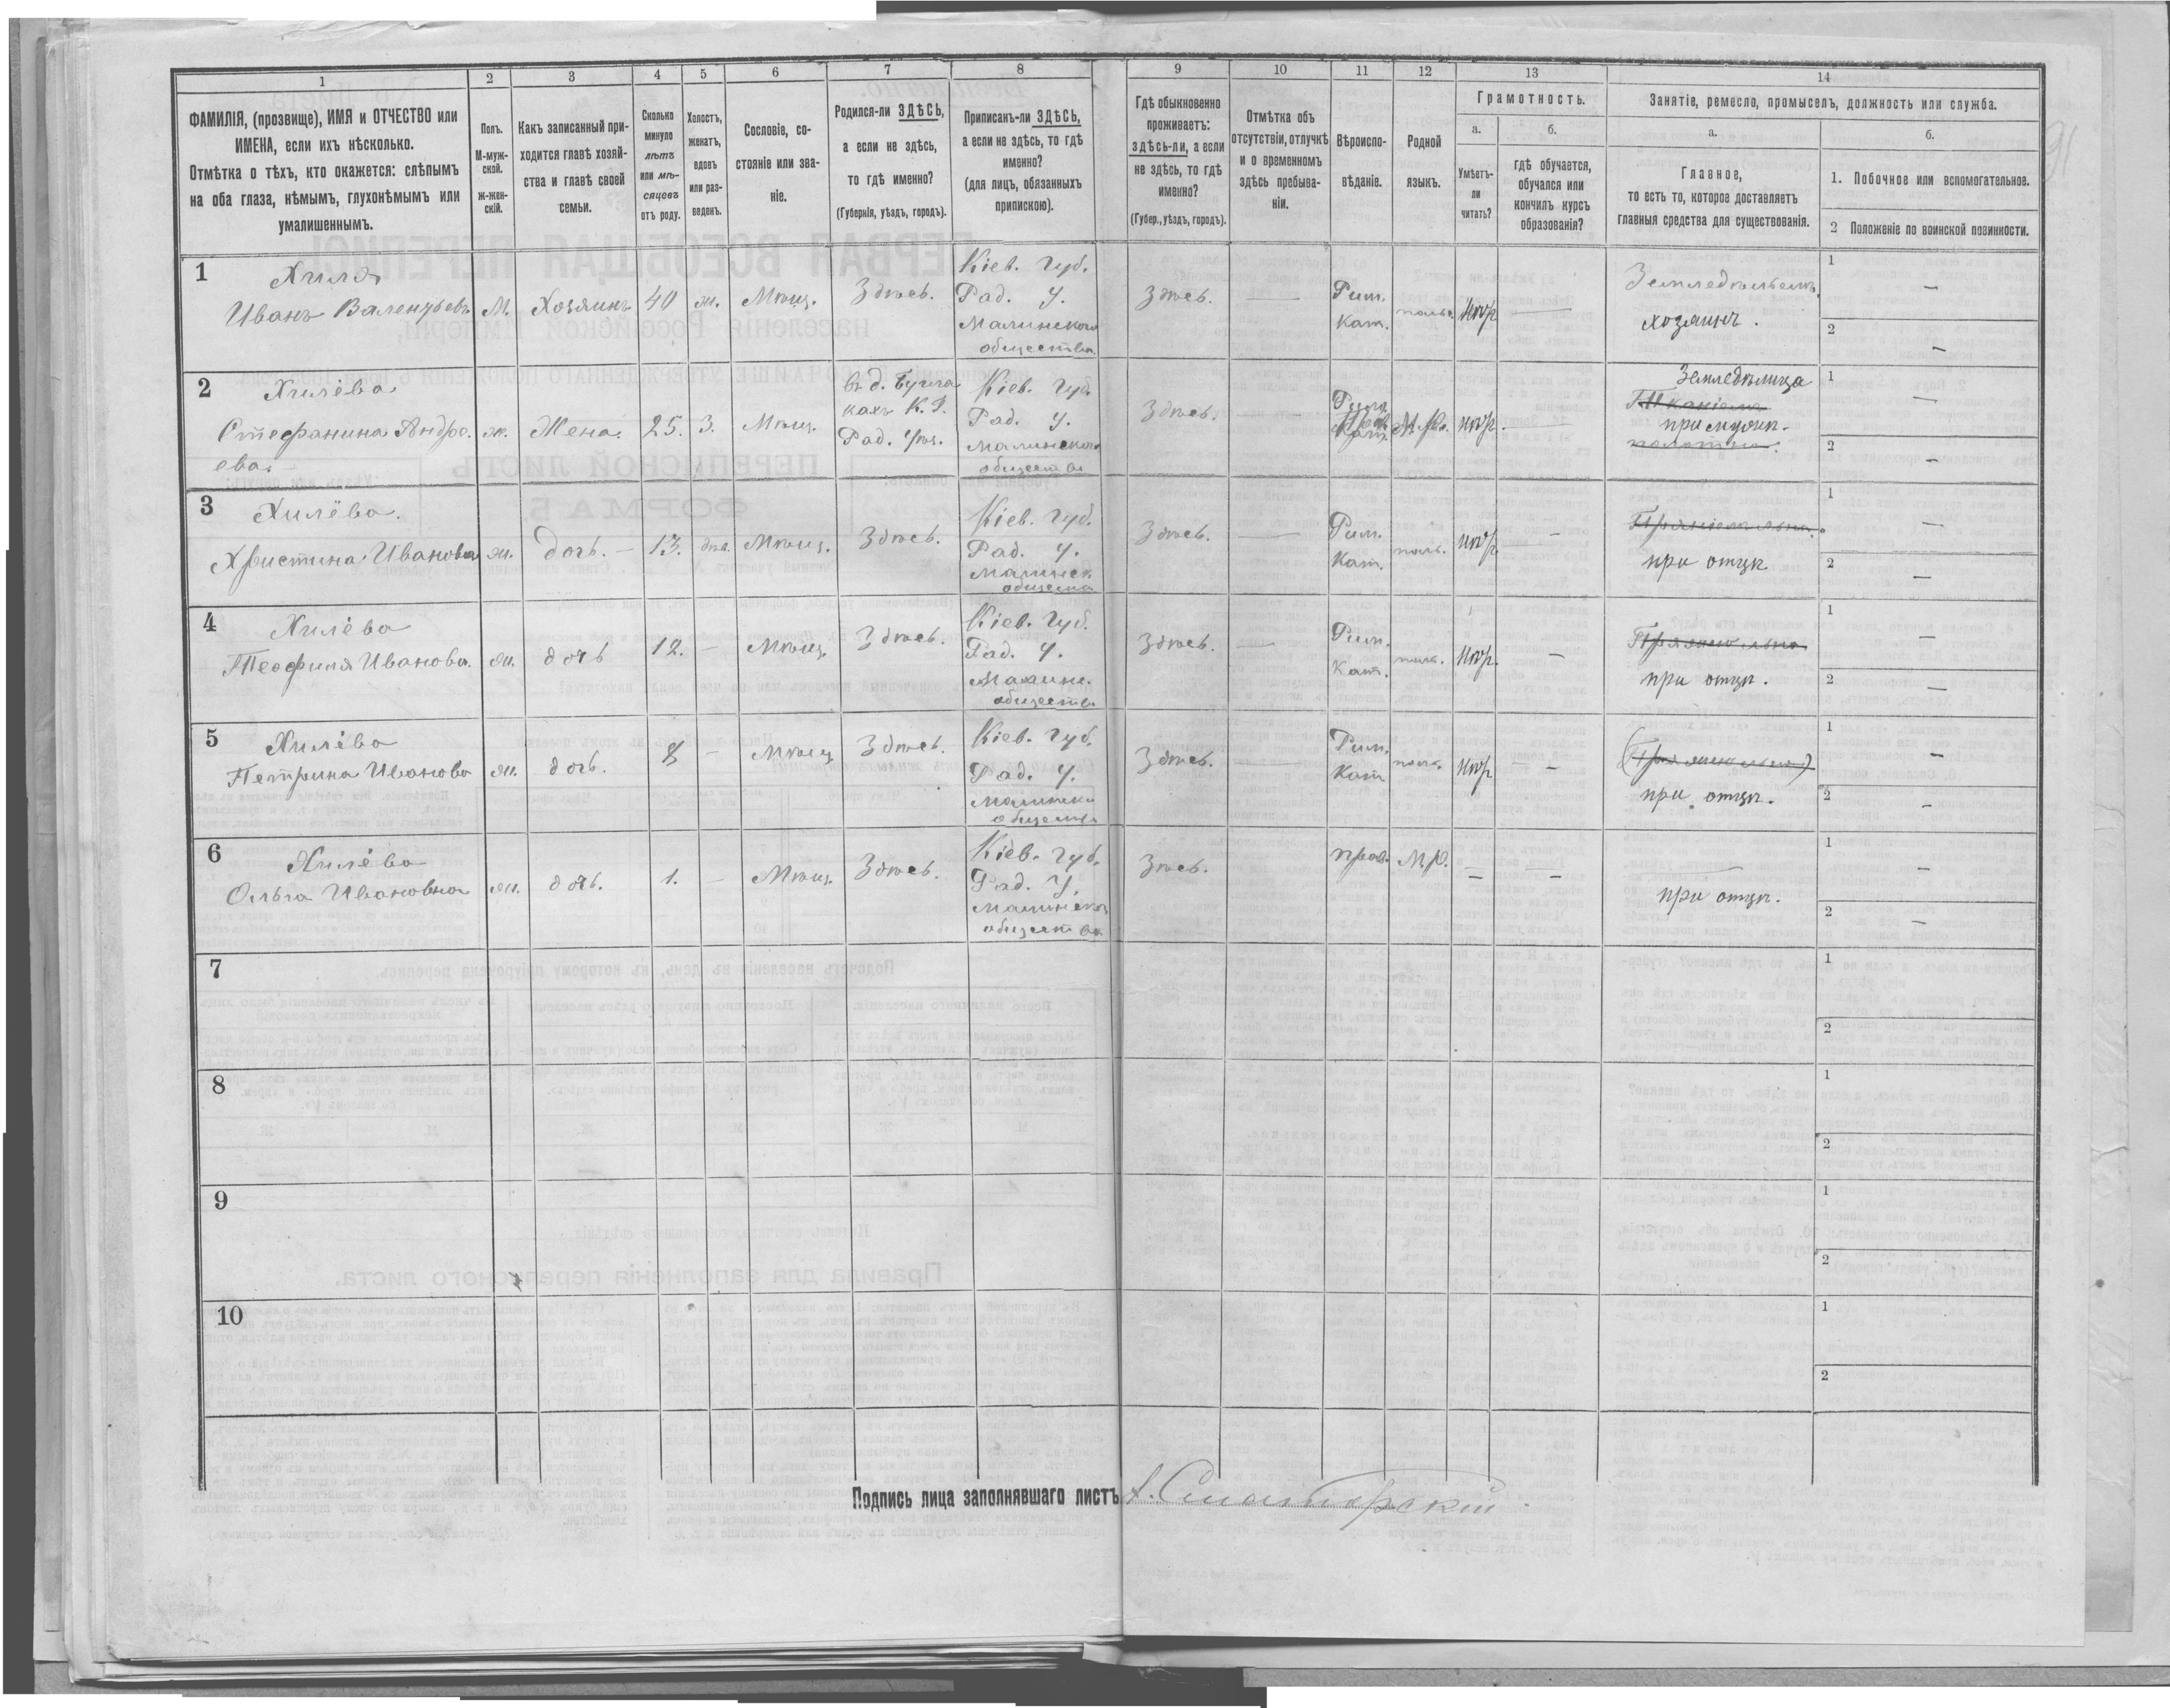 1 2 3 4 5 6 7 8 9 10 11 12 13 14
ФАМИЛІЯ, (прозвище), ИМЯ и ОТЧЕСТВО или
ИМЕНА, если ихъ нѣсколько.
Отмѣтка о тѣхъ, кто окажется: слѣпымъ
на оба глаза, нѣмымъ, глухонѣмымъ или
умалишеннымъ.
Полъ.
М-муж-
ской.
ж-жен-
скій.
Какъ записанный при-
ходится главѣ хозяй-
ства и главѣ своей
семьи.
Сколько
минуло
лѣтъ
или мѣ-
сяцевъ
отъ роду.
Холостъ,
женатъ,
вдовъ
или раз-
веденъ.
Сословіе, со-
стояніе или зва-
ніе.
Родился-ли ЗДѢСЬ,
а если не здѣсь,
то гдѣ именно?
(Губернія, уѣздъ, городъ).
Приписанъ-ли ЗДѢСЬ,
а если не здѣсь, то гдѣ
именно?
(для лицъ, обязанныхъ
припискою).
Гдѣ обыкновенно
проживаетъ:
здѣсь-ли, а если
не здѣсь, то гдѣ
именно?
(Губер., уѣздъ, городъ).
Отмѣтка объ
отсутствіи, отлучкѣ
и о временномъ
здѣсь пребыва-
ніи.
Вѣроиспо-
вѣданіе.
Родной
языкъ.
Грамотность.
а.
Умѣетъ-
ли
читать?
б.
гдѣ обучается,
обучался или
кончилъ курсъ
образованія?
Занятіе, ремесло, промыселъ, должность или служба.
а.
Главное,
то есть то, которое доставляетъ
главныя средства для существованія.
б.
1. Побочное или вспомогательное.
2 Положеніе по воинской повинности.
1
Хиля
Иванъ Валентьевъ
М.
Хозяинъ
40
ж.
Мѣщ.
Здѣсь.
Кіев. Губ.
Рад. У.
Малинского
общества
Здѣсь. —
Рим.
Кат.
польс.
нѣгр —
Земледѣльецъ
хозяинъ.
1 —
2 —
2
Хилёва
Стефанина Андре-
ева.
ж.
Жена.
25.
З.
Мѣщ.
въ д. Буча
кахъ К. Г.
Рад. Уѣз.
Кіев. Губ.
Рад. У.
Малинского
обществ
Здѣсь. —
Рим.
Кат.
М. Р.
нѣгр. —
Земледѣлица
при мужѣ.
1 —
2 —
3
Хилёва.
Христина Иванова
ж.
дочь. —
13.
дѣв.
Мѣщ.
Здѣсь.
Кіев. Губ.
Рад. У.
Малинск.
общества
Здѣсь. —
Рим.
Кат.
поль.
нѣгр —
при отцѣ.
1 —
2 —
4
Хилёва
Теофиля Иванова.
ж.
дочь
12.
—
Мѣщ.
Здѣсь.
Кіев. Губ.
Рад. У.
Малин.
общества
Здѣсь. —
Рим.
Кат.
поль.
нѣгр. —
при отцѣ.
1 —
2 —
5
Хилёва
Петрина Иванова
ж.
дочь.
8
—
Мѣщ
Здѣсь.
Кіев. Губ.
Рад. У.
Малинска
обществ
Здѣсь. —
Рим.
Кат
поль.
нѣгр —
при отцѣ.
1 —
2 —
6
Хилёва
Ольга Ивановна
ж.
дочь.
1.
—
Мѣщ.
Здѣсь.
Кіев. Губ.
Рад. У.
Малинског
обществ
Зѣсь.
прав.
М. Р.
— —
при отцѣ.
1 —
2 —
7
1
2
8
1
2
9
1
2
10
1
2
Подпись лица заполнявшаго листъ